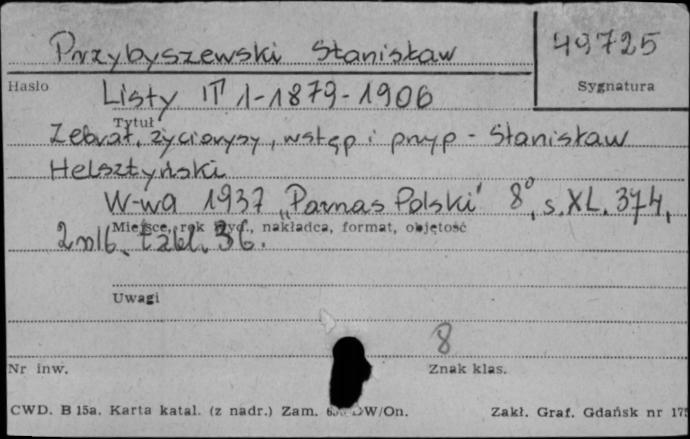 Przybyszewski Stanisław
49725
Hasło
Sygnatura
Listy T 1-1879-1906
Tytuł
Zebrał, życiorysy, wstęp i przyp - Stanisław
Helsztyński
W-wa 1937 „Parnas Polski" 8°, s. XL, 374,
Miejsce, rok wyd., nakładca, format, objętość
2 nlb., tabl. 36.
Uwagi
8
Nr inw.
Znak klas.
CWD. B 15a. Karta katal. (z nadr.) Zam. DW/On.
Zakł. Graf. Gdańsk nr 175